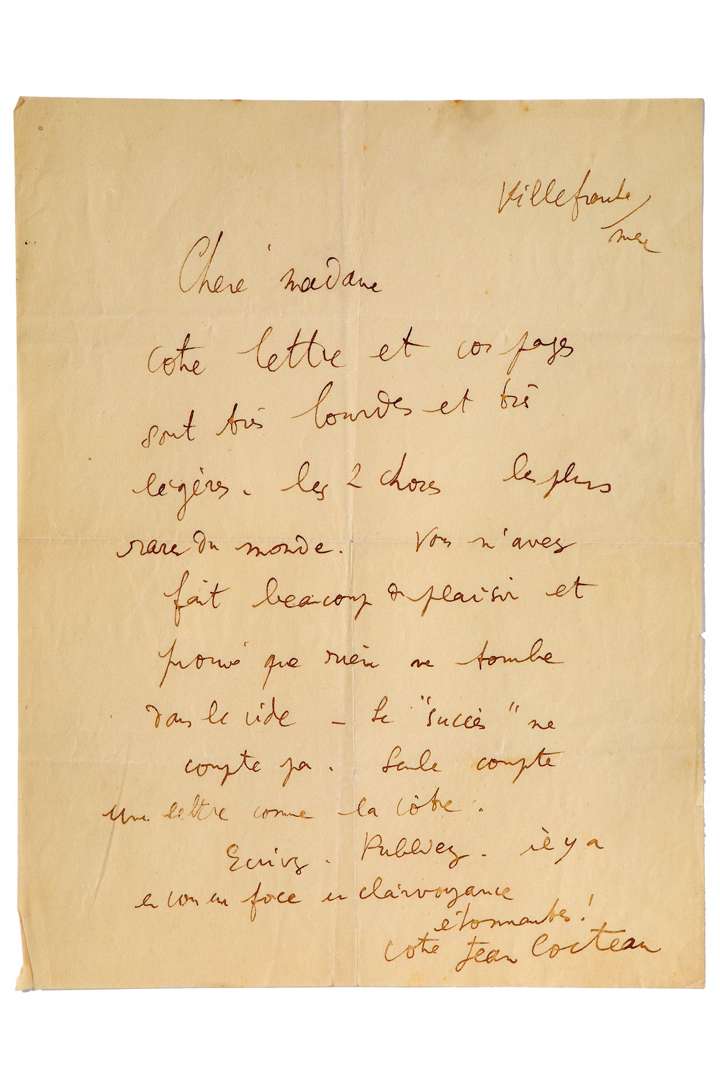 Villefranche
s/mer
Chère madame
votre lettre et vos pages
sont très lourdes et très
légères. les 2 choses les plus
rares du monde. Vous m'avez
fait beaucoup de plaisir et
prouvé que rien ne tombe
dans le vide — Le "succès" ne
compte pas. Seule compte
une lettre comme la vôtre.
Ecrivez. Publiez. il y a
en vous une force une clairvoyance
étonnantes!
votre Jean Cocteau